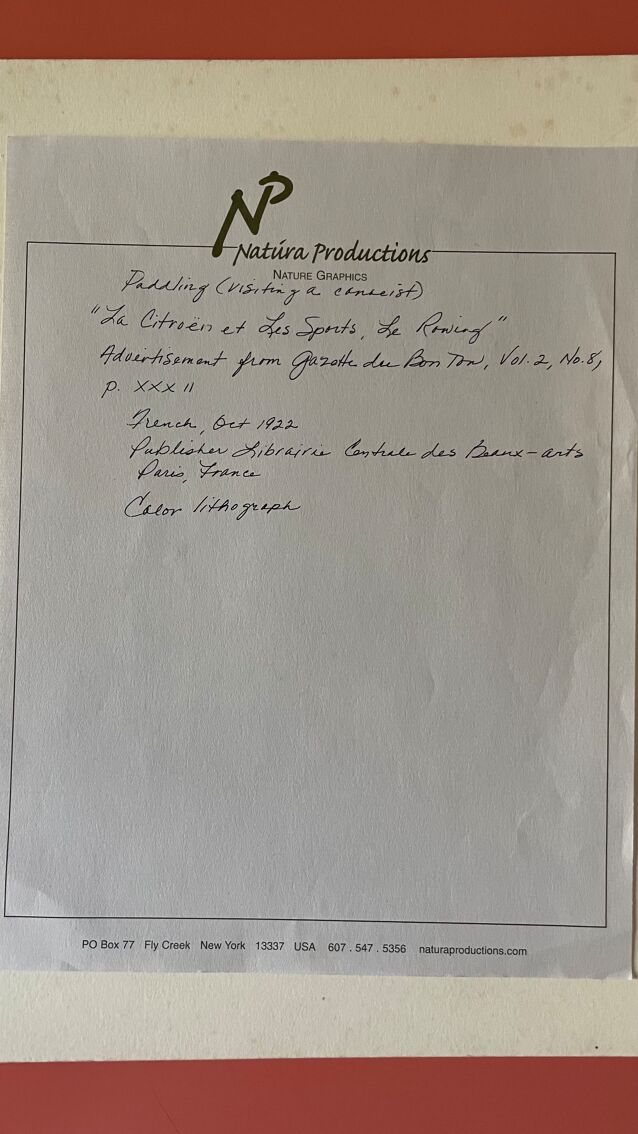 NP
Natúra Productions
NATURE GRAPHICS
Paddling (visiting a canoeist)
"La Citroën et Les Sports, Le Rowing"
Advertisement from Gazette du Bon Ton, Vol. 2, No. 8,
p. XXX II
French, Oct 1922
Publisher Librairie Centrale des Beaux-arts
Paris, France
Color lithograph
PO Box 77 Fly Creek New York 13337 USA 607 . 547 . 5356 naturaproductions.com